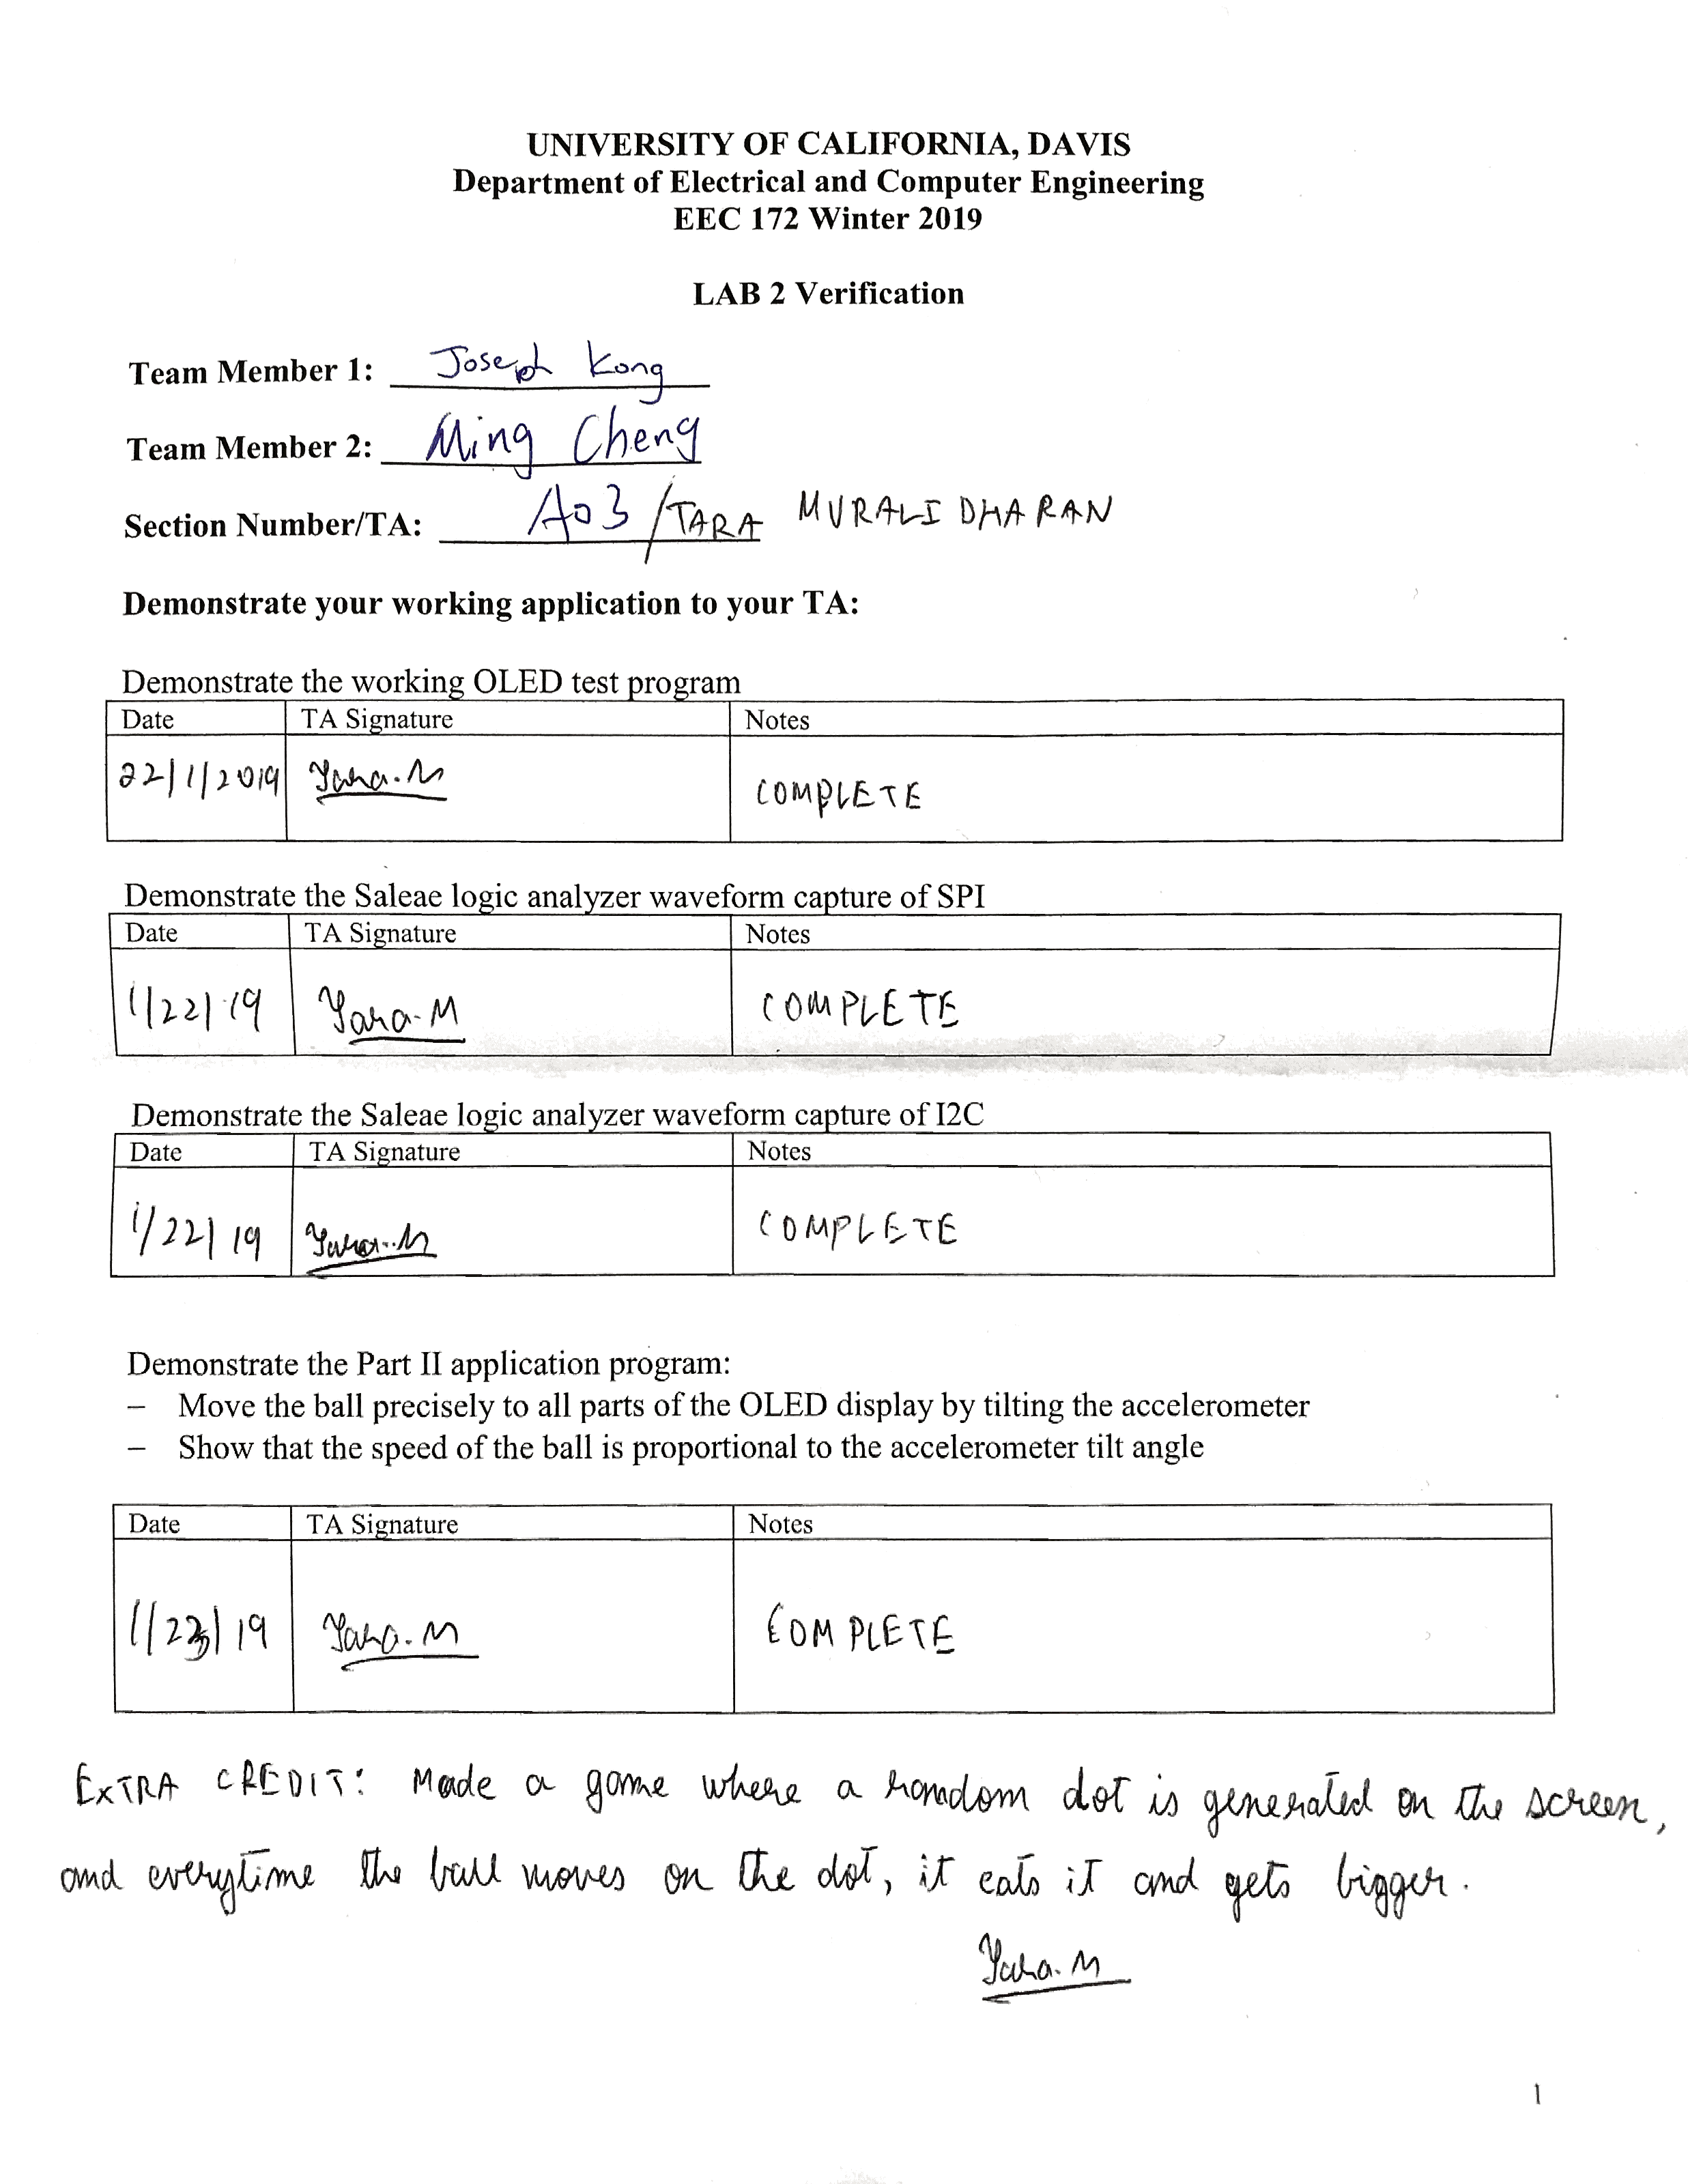 UNIVERSITY OF CALIFORNIA, DAVIS
Department of Electrical and Computer Engineering
EEC 172 Winter 2019
LAB 2 Verification
Team Member 1: Joseph Kong
Team Member 2: Ming Cheng
Section Number/TA: A03 / TARA MURALIDHARAN
Demonstrate your working application to your TA:
Demonstrate the working OLED test program
Date TA Signature Notes
22/1/2019 Tara.M COMPLETE
Demonstrate the Saleae logic analyzer waveform capture of SPI
Date TA Signature Notes
1/22/19 Tara.M COMPLETE
Demonstrate the Saleae logic analyzer waveform capture of I2C
Date TA Signature Notes
1/22/19 Tara.M COMPLETE
Demonstrate the Part II application program:
– Move the ball precisely to all parts of the OLED display by tilting the accelerometer
– Show that the speed of the ball is proportional to the accelerometer tilt angle
Date TA Signature Notes
1/23/19 Tara.M COMPLETE
EXTRA CREDIT: Made a game where a random dot is generated on the screen,
and everytime the ball moves on the dot, it eats it and gets bigger.
Tara.M
1